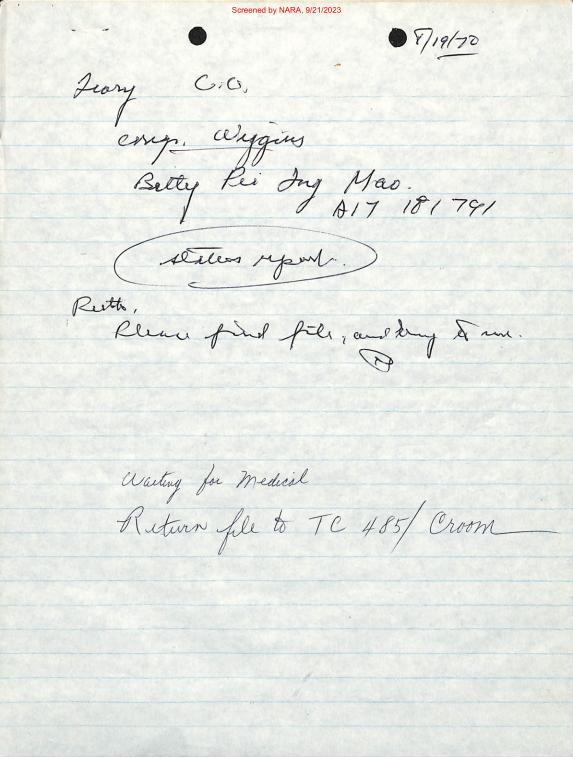 Screened by NARA, 9/21/2023
8/19/70
C.O.
cong. Wiggins
Betty Pei Ing Mao.
A17 181 791
status report.
Ruth,
Please find file, and bring to me.
Waiting for Medical
Return file to TC 485/ Croom